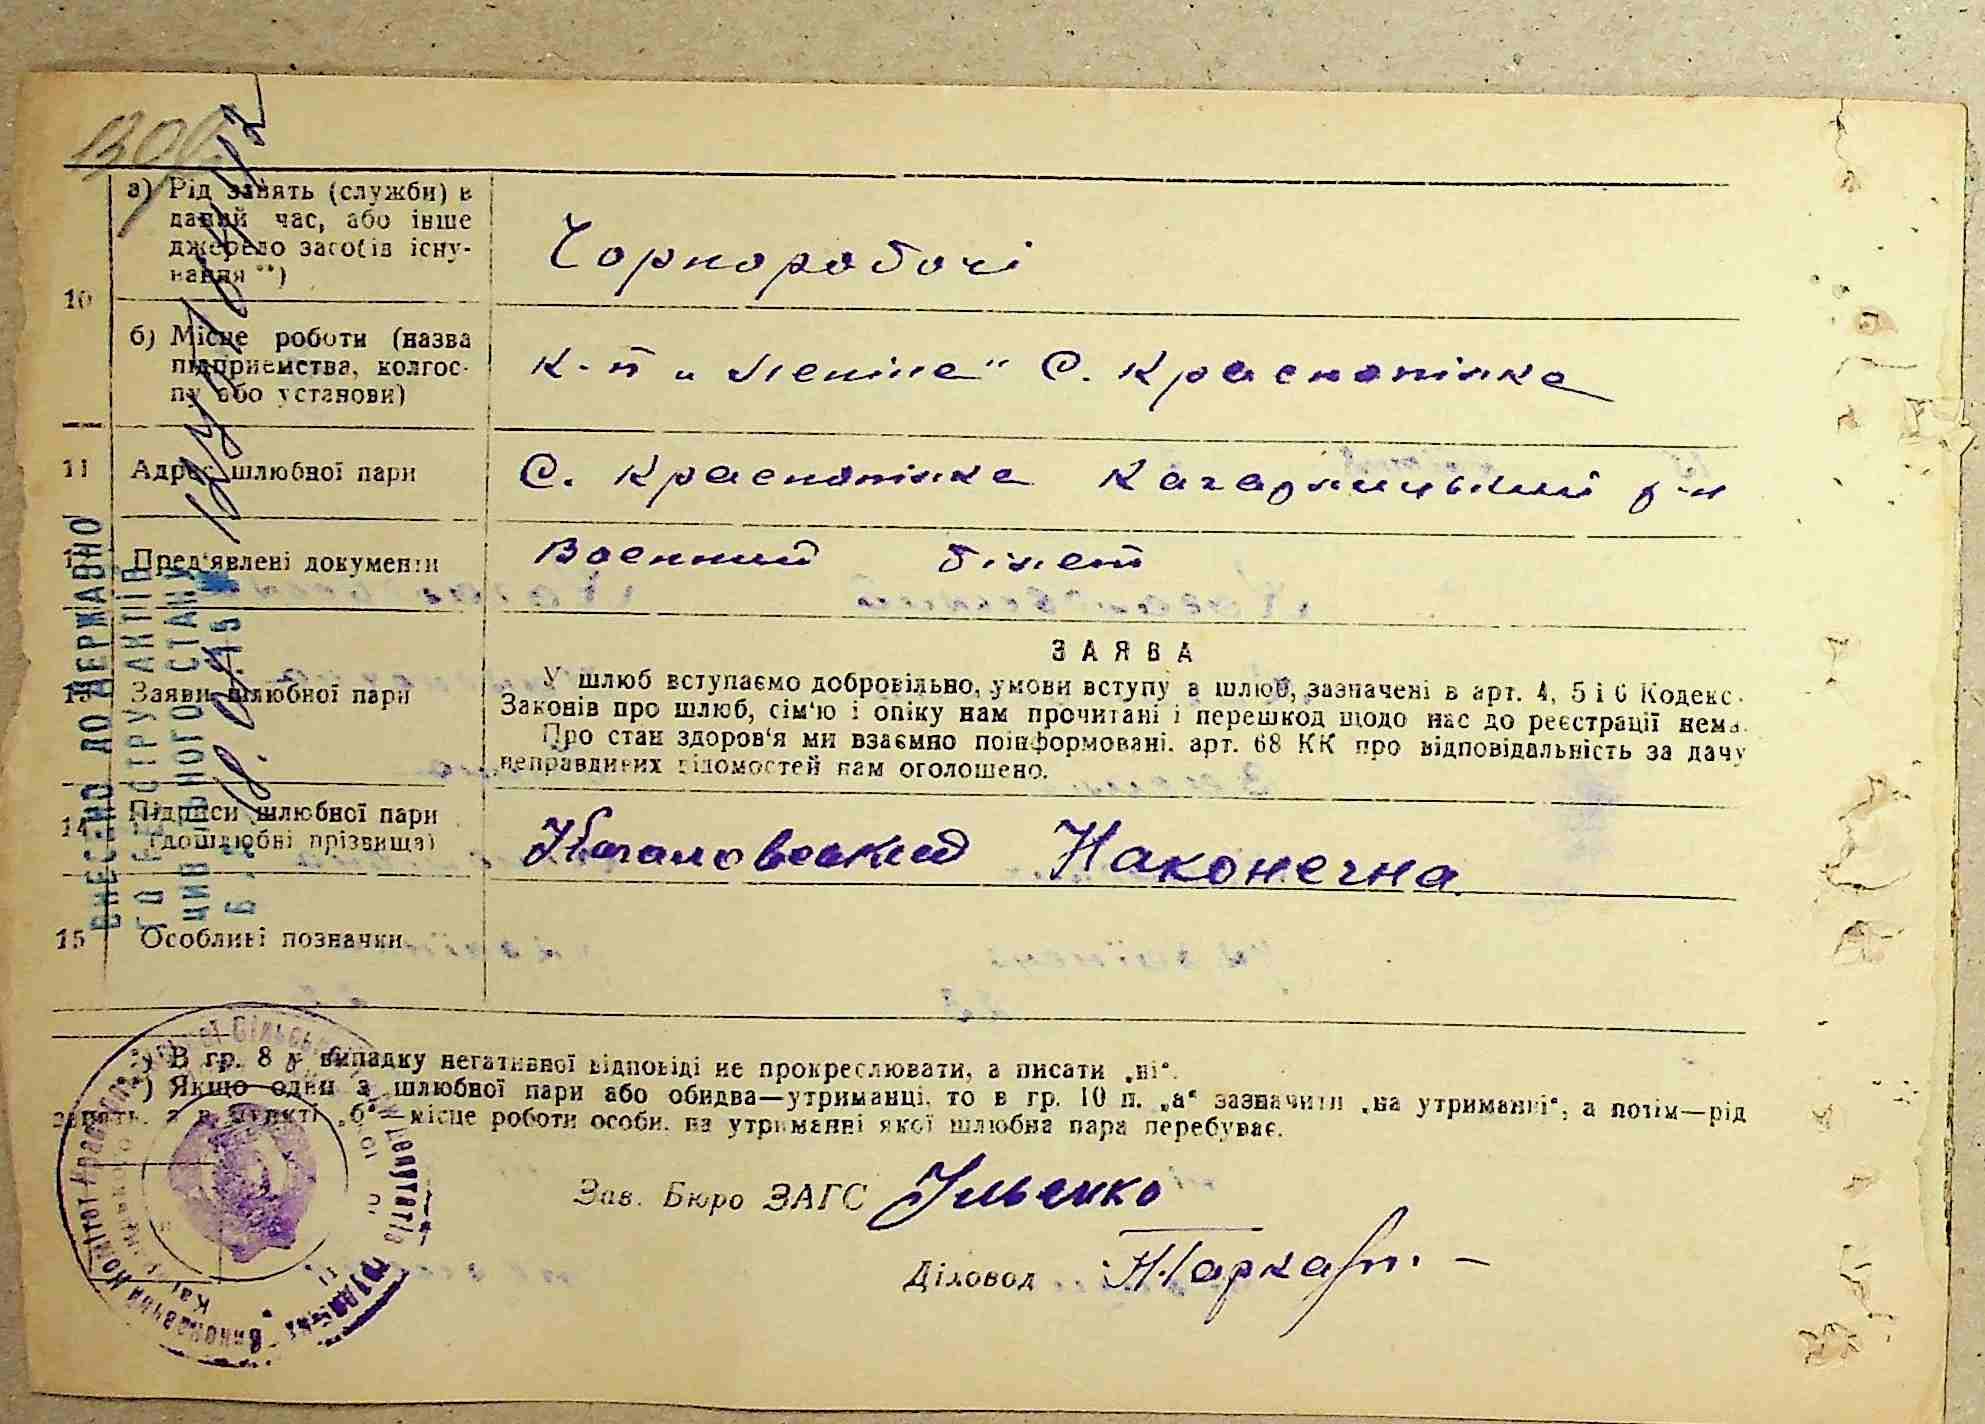 10
а) Рід занять (служби) в
даний час, або інше
джерело засобів існу-
вання **)
Чорноробочі
б) Місце роботи (назва
підприємства, колгос-
пу або установи)
к-п „Леніна" С. Краснопілка
11 Адрес шлюбної пари
С. Краснопілка Кагарлицький р-н
Пред'явлені документи
Военний білет
13 Заяви шлюбної пари
ЗАЯВА
У шлюб вступаємо добровільно, умови вступу в шлюб, зазначені в арт. 4, 5 і 6 Кодекс.
Законів про шлюб, сім'ю і опіку нам прочитані і перешкод щодо нас до реєстрації нема.
Про стан здоров'я ми взаємно поінформовані. арт. 68 КК про відповідальність за дачу
неправдивих відомостей нам оголошено.
14 Підписи шлюбної пари
(дошлюбні прізвища)
Наконечна
15 Особливі позначки
ВНЕСЕНО ДО ДЕРЖАВНО
ГО РЕЄСТРУ АКТІВ
ЦИВІЛЬНОГО СТАНУ
*) В гр. 8 у випадку негативної відповіді не прокреслювати, а писати „ні".
**) Якщо один з шлюбної пари або обидва—утриманці, то в гр. 10 п. „а" зазначити „на утриманні", а потім—рід
занять, а в пункті „б" місце роботи особи, на утриманні якої шлюбна пара перебуває.
Зав. Бюро ЗАГС Ільенко
Діловод
Виконавчий Комітет
депутатів трудящих